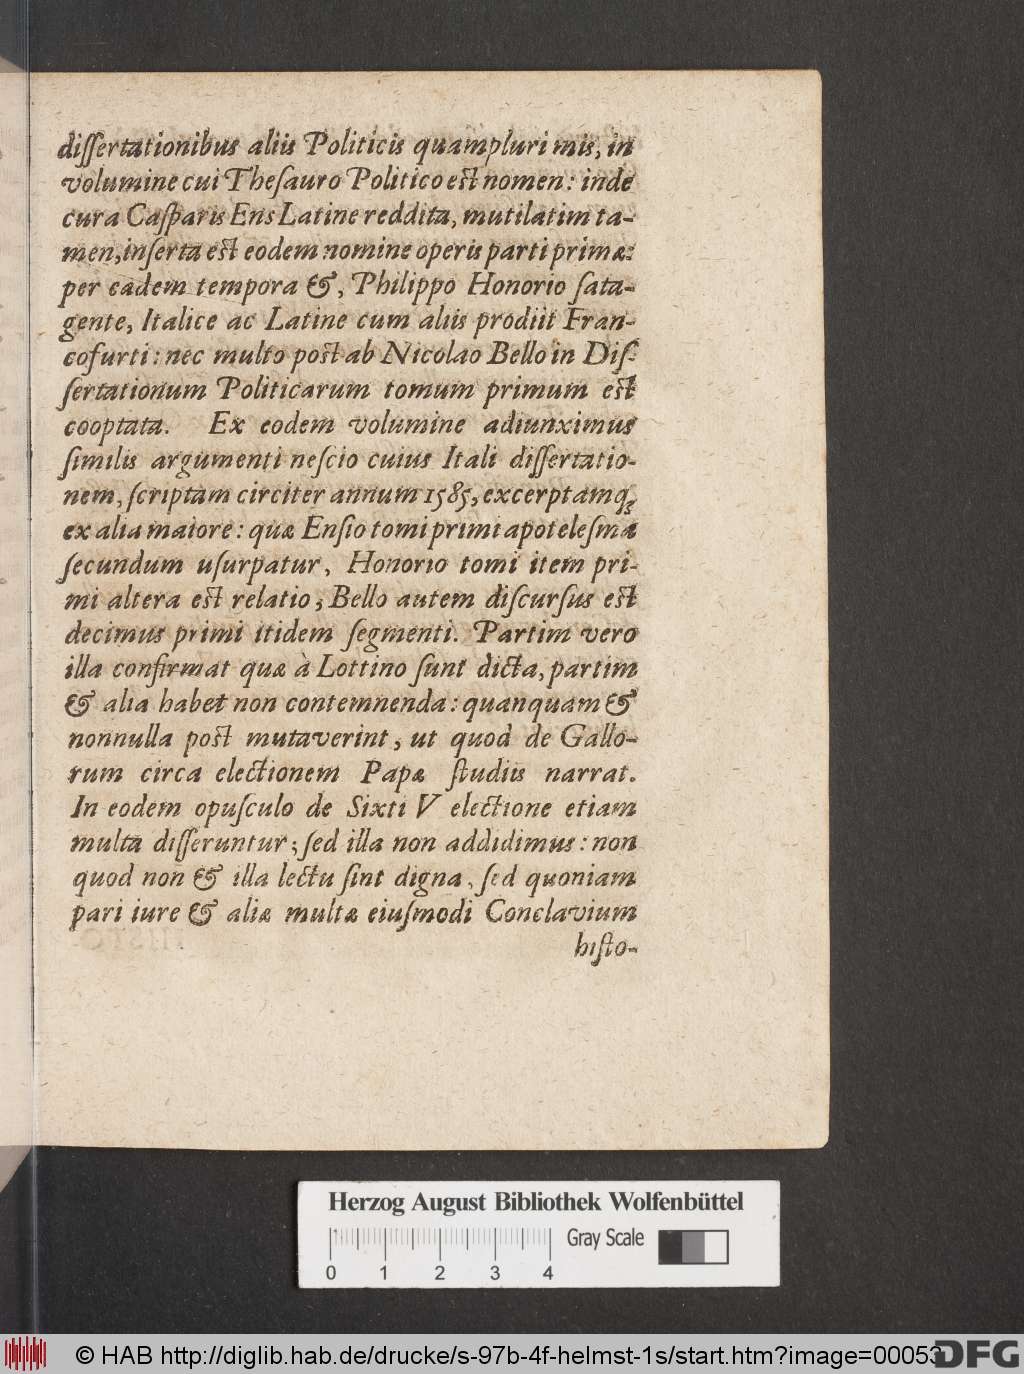 diſſertationibus aliis Politicis quampluri mis, in
volumine cui Theſauro Politico eſt nomen: inde
cura Caſparis Ens Latine reddita, mutilatim ta-
men, inſerta eſt eodem nomine operis parti primæ:
per eadem tempora &, Philippo Honorio ſata-
gente, Italice ac Latine cum aliis prodiit Fran-
cofurti: nec multo poſt ab Nicolao Bello in Diſ-
ſertationum Politicarum tomum primum eſt
cooptata. Ex eodem volumine adiunximus
ſimilis argumenti neſcio cuius Itali diſſertatio-
nem, ſcriptam circiter annum 1585, excerptamq́;
ex alia maiore: quæ Enſio tomi primi apoteleſma
ſecundum uſurpatur, Honorio tomi item pri-
mi altera eſt relatio, Bello autem diſcurſus eſt
decimus primi itidem ſegmenti. Partim vero
illa confirmat quæ à Lottino ſunt dicta, partim
& alia habet non contemnenda: quanquam &
nonnulla poſt mutaverint, ut quod de Gallo-
rum circa electionem Papæ ſtudiis narrat.
In eodem opuſculo de Sixti V electione etiam
multa diſſeruntur; ſed illa non addidimus: non
quod non & illa lectu ſint digna, ſed quoniam
pari iure & aliæ multæ eiuſmodi Conclavium
hiſto-
Herzog August Bibliothek Wolfenbüttel
Gray Scale
0 1 2 3 4
© HAB http://diglib.hab.de/drucke/s-97b-4f-helmst-1s/start.htm?image=00053
DFG